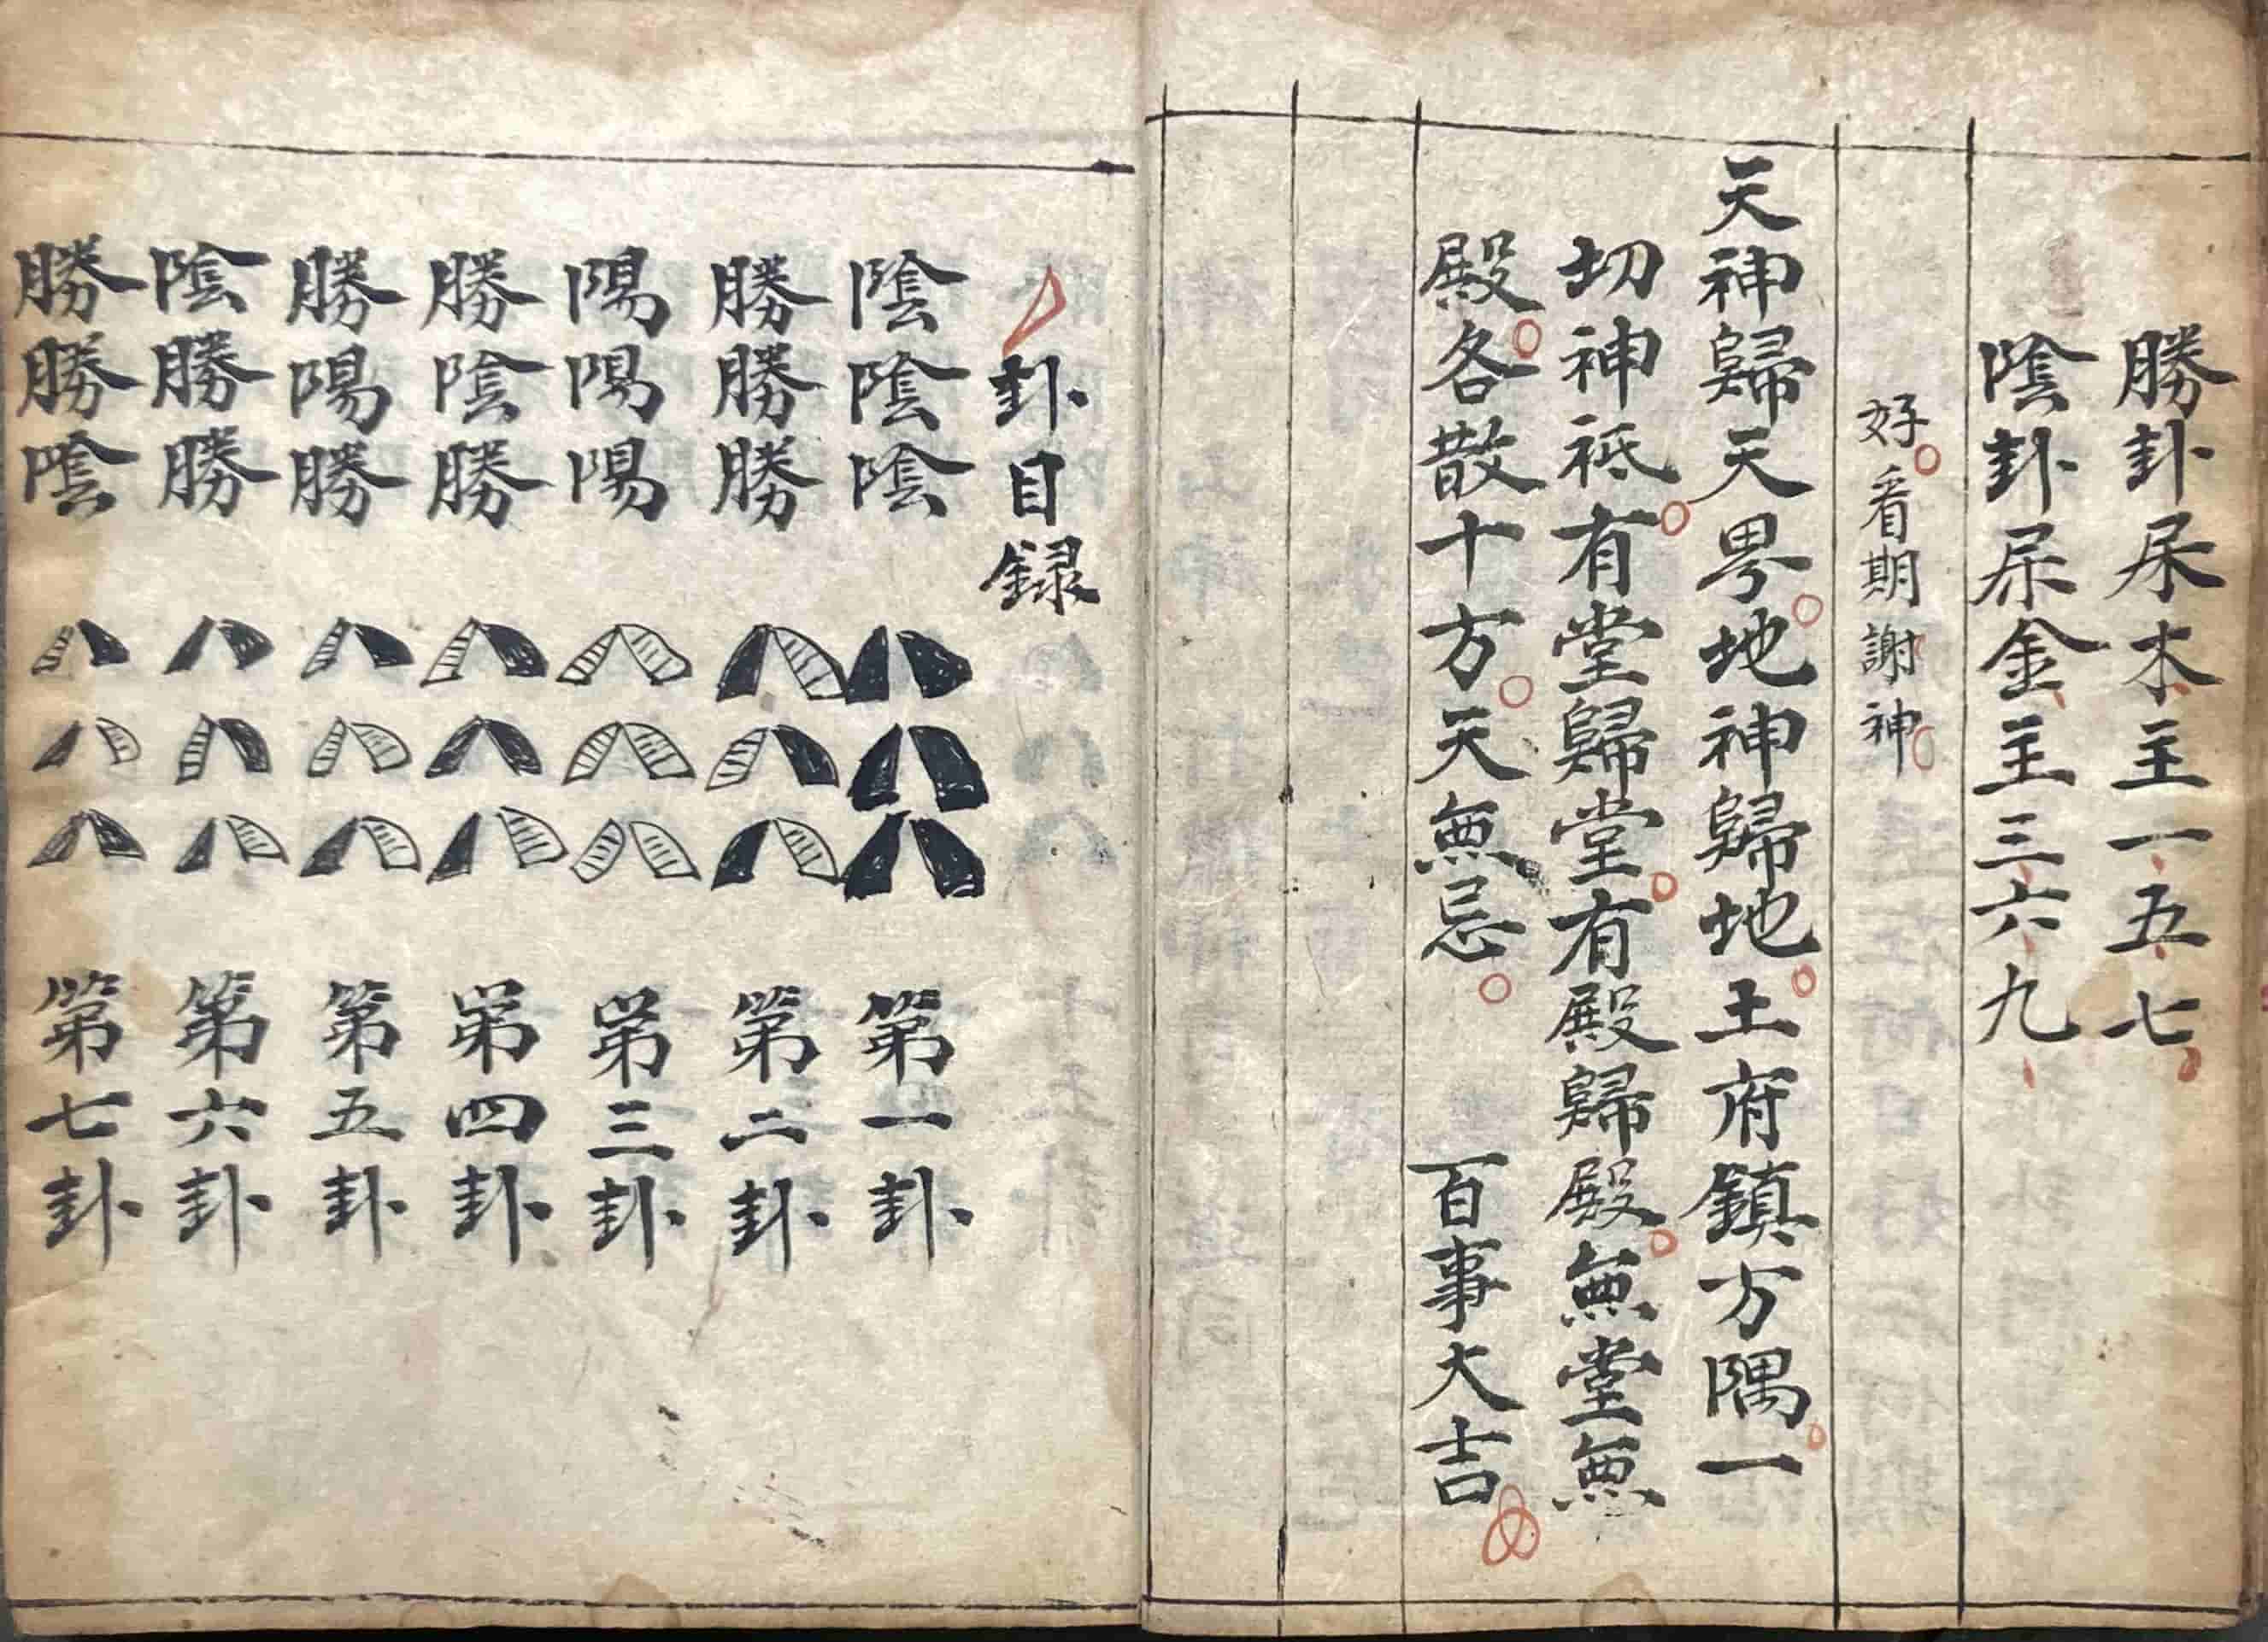 勝卦屎木主一五七
陰卦屎金主三六九
好看期謝神
天神歸天畀地神歸地土府鎮方隅一
切神祗有堂歸堂有殿歸殿無堂無
殿各散十方天無忌 百事大吉
卦目録
陰陰陰 第一卦
勝勝勝 第二卦
陽陽陽 第三卦
勝陰勝 第四卦
勝陽勝 第五卦
陰勝勝 第六卦
勝勝陰 第七卦